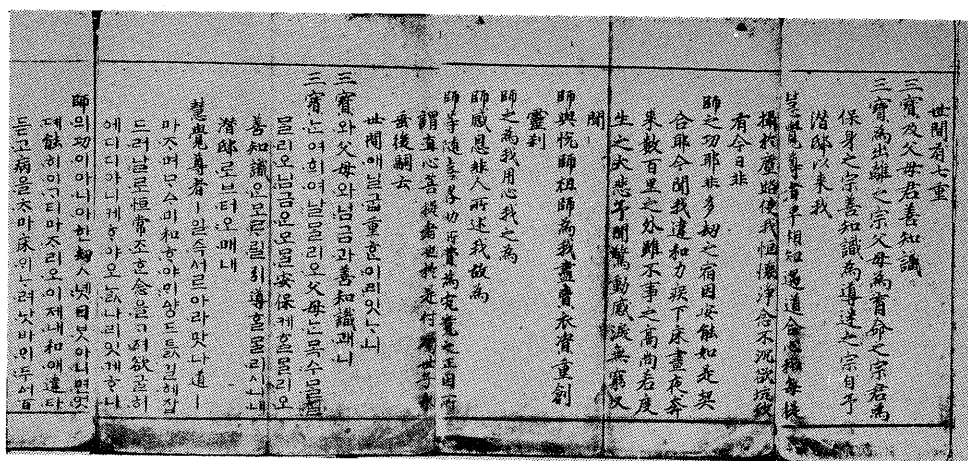 世間有七重
三寶及父母君善知識
三寶為出離之宗父母為育命之宗君為
保身之宗善知識為導迷之宗自予
潛邸以來我
慧覺尊者早相知遇道合心稱每提
攝於塵路使我恒懷淨念不沉欲坑致
有今日非
師之功耶非多劫之宿因安能如是契
合耶今聞我違和力疾下床晝夜奔
來數百里之外雖不事之高尚若度
生之大悲予聞驚動感淚無窮又
聞
師與悅師祖師為我盡賣衣資重創
靈刹
師之為我用心我之為
師感恩非人所述我故為
師等隨喜略助所費為究竟之正因所
謂直心菩提者也於是付囑世子永
垂後嗣云
世間애닐굽重ᄒᆞᆫ이리잇ᄂᆞ니
三寶와父母와님금과善知識괘니
三寶ᄂᆞᆫ여희여날ᄆᆞᆯ리오父母ᄂᆞᆫ목숨
ᄆᆞᆯ리오님금은모ᄆᆞᆯ安保케ᄒᆞᆯᄆᆞᆯ리오
善知識ᄋᆞᆫ모ᄅᆞ릴引導ᄒᆞᆯᄆᆞᆯ리시니내
潛邸로브터오매내
慧覺尊者ㅣ일즉서르아라맛나道ㅣ
마ᄌᆞ며ᄆᆞᅀᆞ미和ᄒᆞ야ᄆᆡ샹드틄길헤잡
드러날로恒常조ᄒᆞᆫ念을ᄀᆞ져欲굴허
에디디아니케ᄒᆞ야오ᄂᆞᆳ나리잇게ᄒᆞ니
師의功이아니아한劫엣녯因곳아니면엇
뎨能히이ᄀᆞ티마ᄌᆞ리오이제내和애違타
듣고病을ᄎᆞ마床의ᄂᆞ려낫바ᄆᆡ두ᅀᅥ百